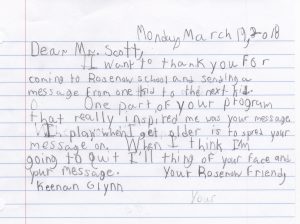 Monday March 19, 2018
Dear Mr. Scott,
I want to thank you for
coming to Rosenow school and sending a
message from one kid to the next kid.
One part of your program
that really inspired me was your message.
My plan when I get older is to spred your
message on. When I think I'm
going to quit I'll thing of your face and
your message. Your Rosenow Friend,
Keenan Glynn
Your